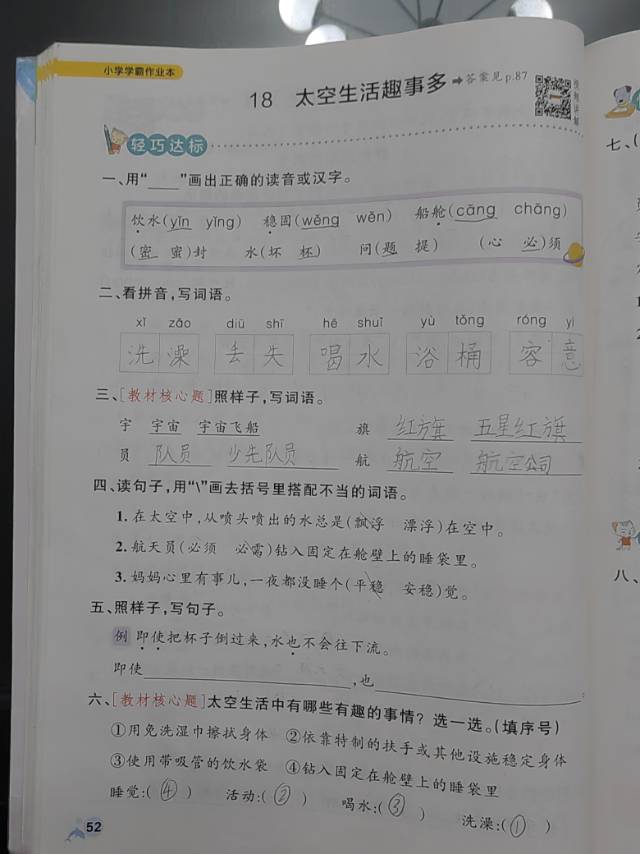 小学学霸作业本
18 太空生活趣事多 ➡答案见p.87
视频讲解
轻巧达标
一、用“____”画出正确的读音或汉字。
饮水(yǐn yǐng) 稳固(wěng wěn) 船舱(cāng chāng)
(密 蜜)封 水(坏 杯) 问(题 提) (心 必)须
二、看拼音,写词语。
xǐ zǎo diū shī hē shuǐ yù tǒng róng yì
洗澡 丢失 喝水 浴桶 容意
三、[教材核心题]照样子,写词语。
宇 宇宙 宇宙飞船 旗 红旗 五星红旗
员 队员 少先队员 航 航空 航空公司
四、读句子,用“\”画去括号里搭配不当的词语。
1.在太空中,从喷头喷出的水总是(飘浮 漂浮)在空中。
2.航天员(必须 必需)钻入固定在舱壁上的睡袋里。
3.妈妈心里有事儿,一夜都没睡个(平稳 安稳)觉。
五、照样子,写句子。
例 即使把杯子倒过来,水也不会往下流。
即使____,也____
六、[教材核心题]太空生活中有哪些有趣的事情?选一选。(填序号)
①用免洗湿巾擦拭身体 ②依靠特制的扶手或其他设施稳定身体
③使用带吸管的饮水袋 ④钻入固定在舱壁上的睡袋里
睡觉:(④) 活动:(②) 喝水:(③) 洗澡:(①)
52
七、(
八、